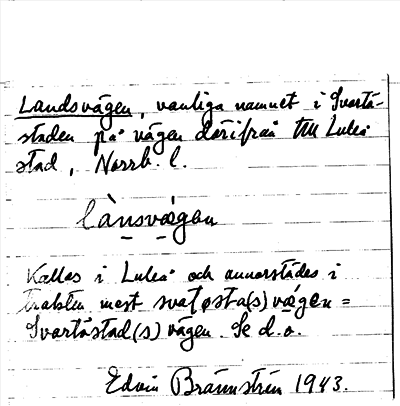 Landsvägen, vanliga namnet i Svartå-
staden på vägen därifrån till Luleå
stad, Norrb. l.
lànsvæ̀gen
Kallas i Luleå och annorstädes i
trakten mest svatøsta(s)vægen =
Svartåstad(s)vägen. Se d.o.
Edvin Brännström 1943.